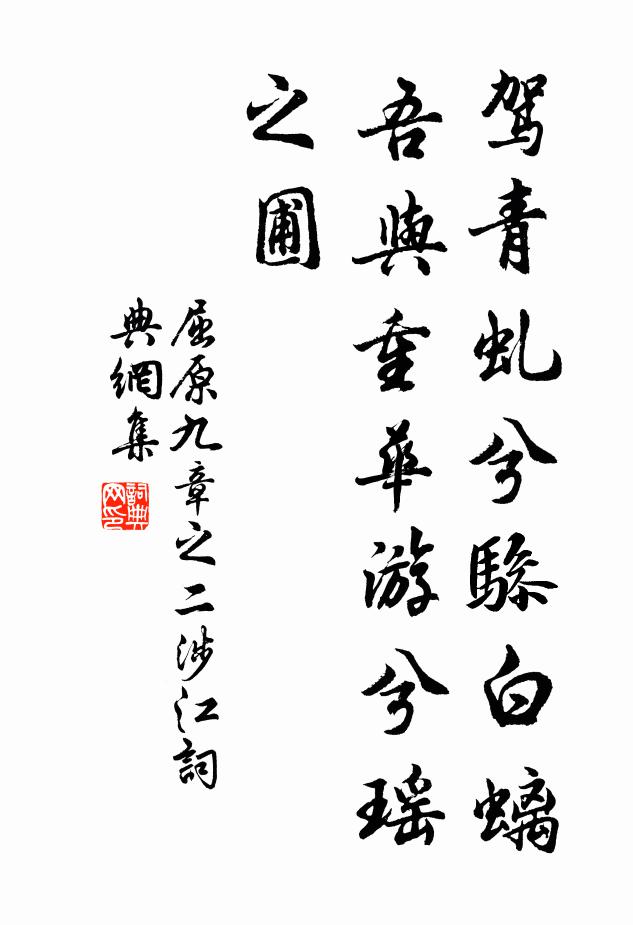 駕青虬兮驂白螭
吾與重華游兮瑤
之圃
屈原九章之二涉江詞
典網集
詞典
网印